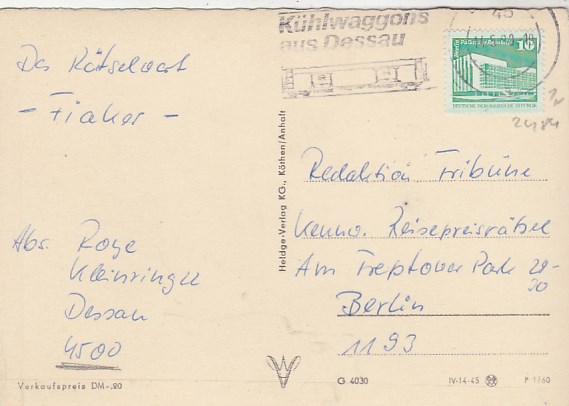 Kühlwaggons
aus Dessau
10
DEUTSCHE DEMOKRATISCHE REPUBLIK
2484
Das Rätselwort
- Fiaker -
Heldge-Verlag KG., Köthen/Anhalt
Redaktion Tribüne
Kennw. Reisepreisrätsel
Am Treptower Park 28-
30
Berlin
1193
Abs. Roye
Dessau
4500
Verkaufspreis DM -,20
G 4030
IV-14-45
P 1/60